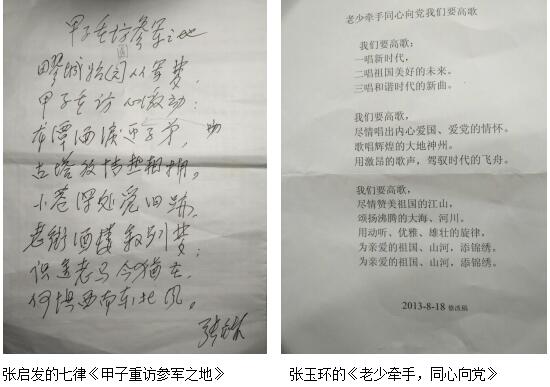 甲子重访参军之地
圆
甲子重访心激动
古塔放情垫相拥
小巷深处觅旧踪
老街酒楼叙别梦
识途老马今犹在
何惧西南东北风。
老少牵手同心向党我们要高歌
我们要高歌:
一唱新时代,
二唱祖国美好的未来。
三唱和谐时代的新曲。
我们要高歌,
尽情唱出内心爱国、爱党的情怀。
歌唱辉煌的大地神州。
用激昂的歌声,驾驭时代的飞舟。
我们要高歌,
尽情赞美祖国的江山,
颂扬沸腾的大海、河川。
用动听、优雅、雄壮的旋律,
为亲爱的祖国、山河,添锦绣。
为亲爱的祖国、山河,添锦绣。
2013-8-18 修改稿
张启发的七律《甲子重访参军之地》
张玉环的《老少牵手,同心向党》